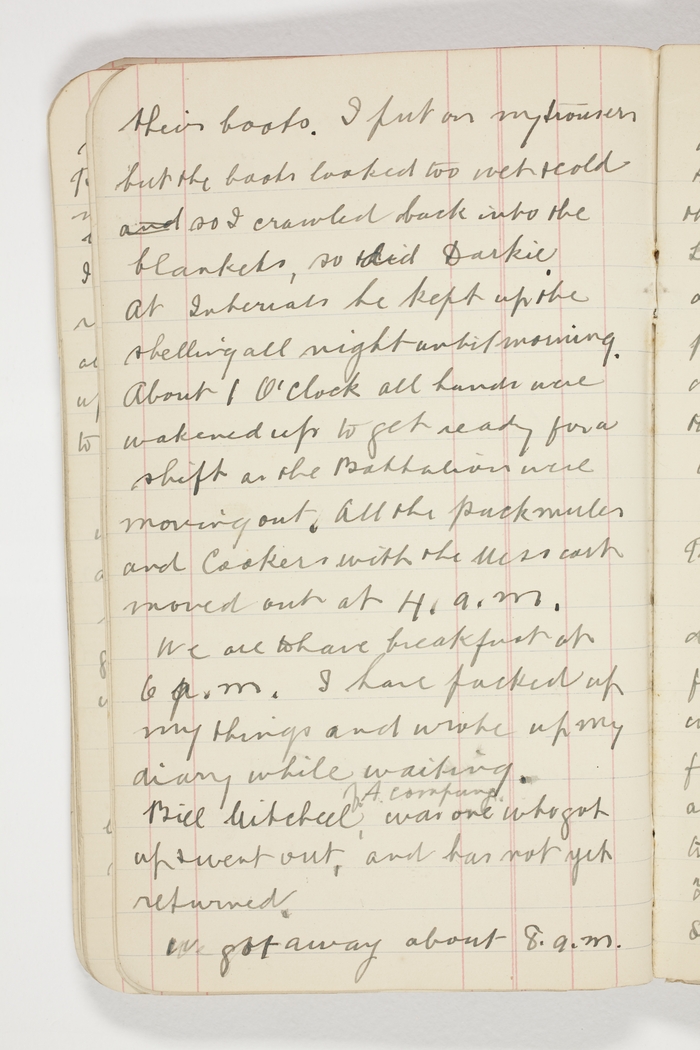 their boots. I put on my trousers
but the boots looked too wet & cold
and so I crawled back into the
blankets, so did Darkie.
At Intervals he kept up the
shelling all night until morning.
About 1 O'Clock all hands were
wakened up to get ready for a
shift as the Battalion were
moving out. All the pack mules
and Cookers with the Mess cart
moved out at 4. a.m.
We are to have breakfast at
6 p.m. I have packed up
my things and wrote up my
diary while waiting.
of A. company
Bill Mitchell, was one who got
up & went out, and has not yet
returned.
We got away about 8. a.m.